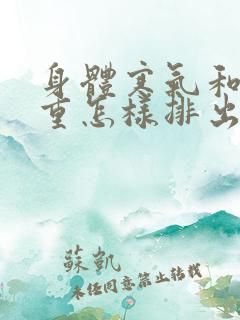 身體寒氣和
重怎樣排出
蘇凱
未經同意禁止轉載